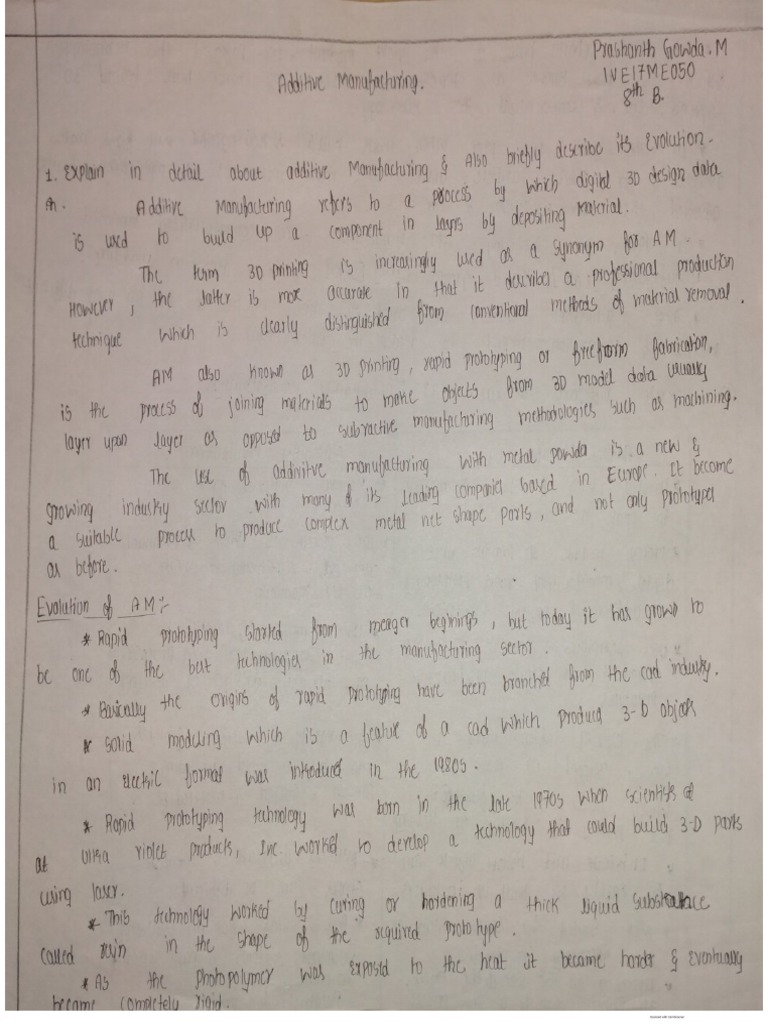 Prashanth Gowda.M
1VE17ME050
8th B.
Additive Manufacturing.
1. Explain in detail about additive Manufacturing & Also briefly describe its Evolution.
Additive Manufacturing refers to a process by which digital 3D design data
is used to build up a component in layers by depositing Material.
The term 3D printing is increasingly used as a synonym for AM.
However, the latter is more accurate in that it describes a professional production
technique which is clearly distinguished from conventional methods of material removal.
AM also known as 3D printing, rapid prototyping or freeform fabrication,
is the process of joining materials to make objects from 3D model data usually
layer upon layer as opposed to subractive manufacturing methodologies such as machining.
The use of addivitve manufacturing with metal powda is a new &
growing industry sector with many of its Leading companies based in Europe. It become
a suitable process to produce complex metal net shape parts, and not only prototypes
as before.
Evolution of AM:-
* Rapid prototyping started from meager beginings, but today it has grown to
be one of the best technologies in the manufacturing sector.
* Basically the origins of rapid prototyping have been branched from the cad industry.
* Solid modeling which is a feature of a cad which produces 3-D objects
in an format was introduced in the 1980s.
* Rapid prototyping technology was born in the late 1970s when scientists
at Ultra violet products, Inc. worked to develop a technology that could build 3-D parts
using laser.
* This technology worked by curing or hardening a thick liquid
called in the shape of the required prototype.
* As the photopolymer was exposed to the heat it became harder & Eventually
became completely rigid.